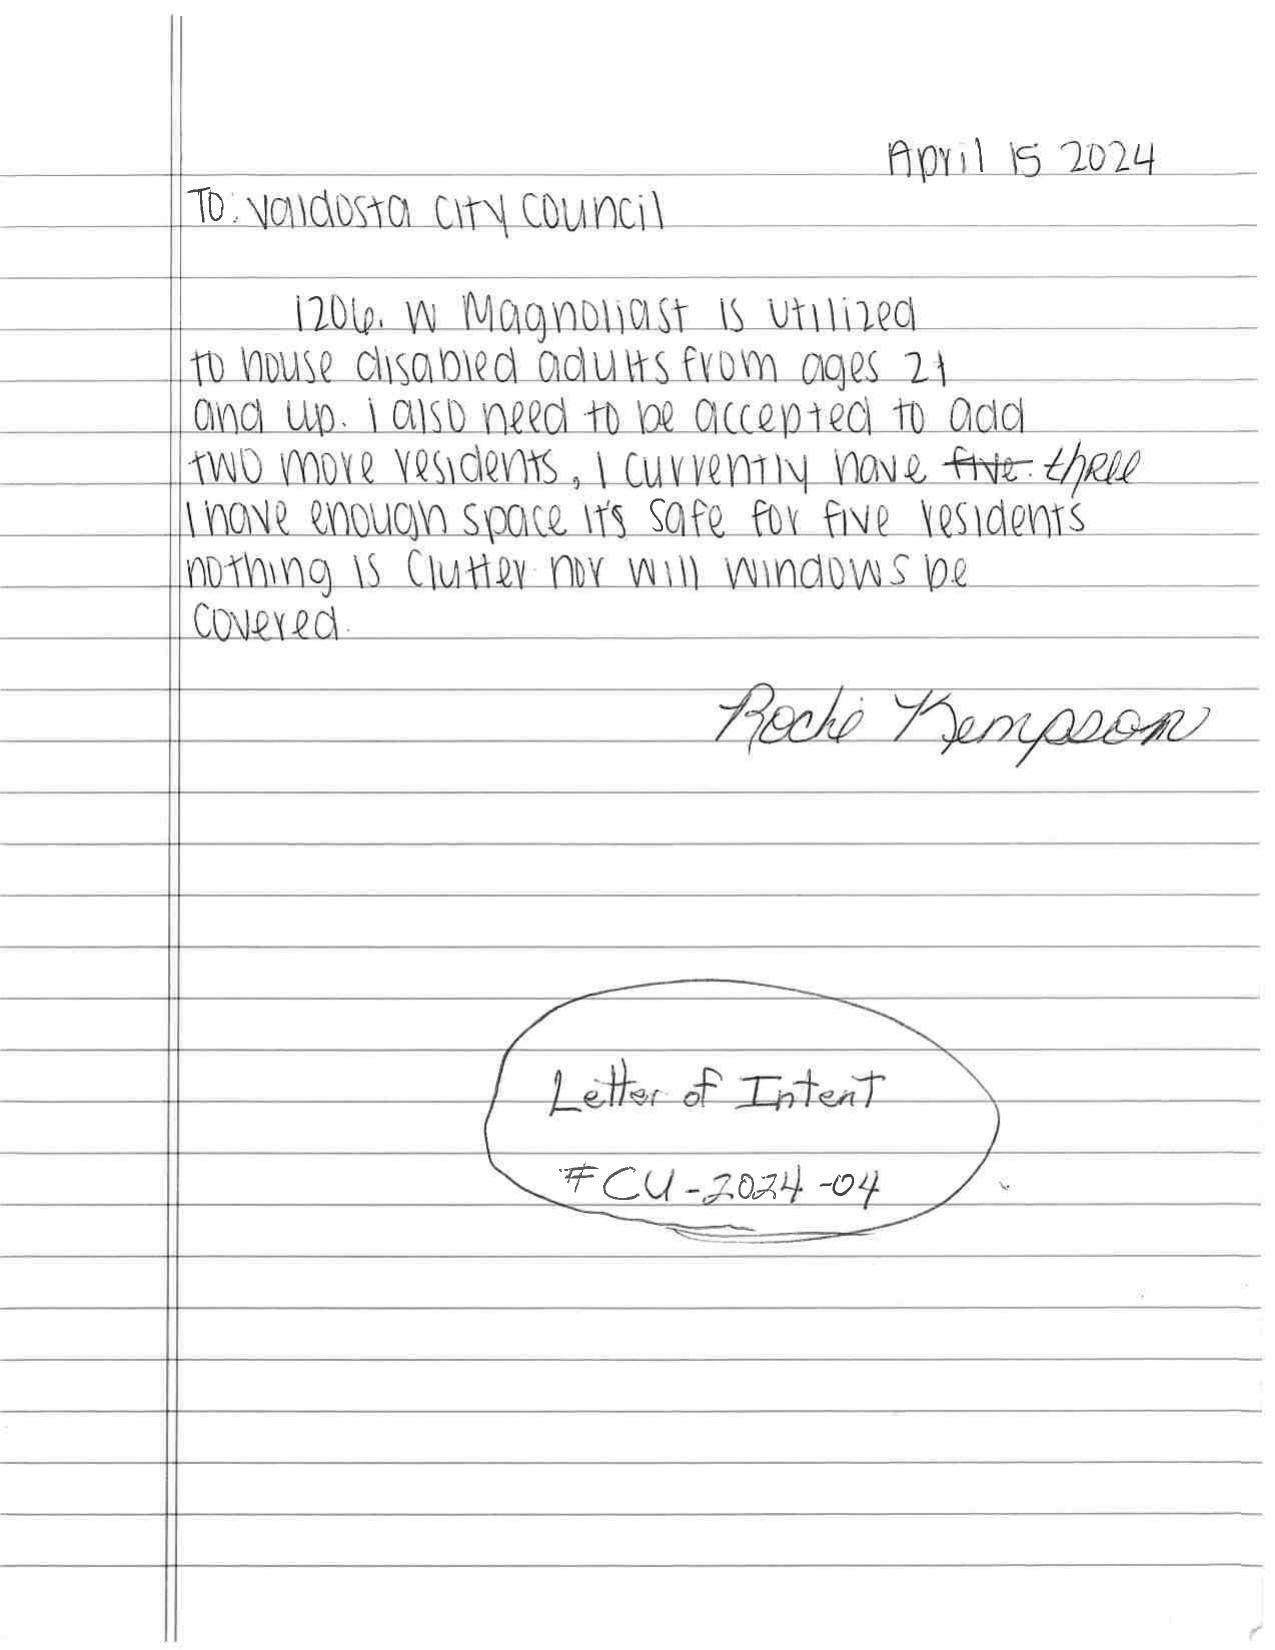 April 15 2024
To: Valdosta City Council
1206. W Magnolia st is utilized
to house disabled adults from ages 21
and up. I also need to be accepted to add
two more residents, I currently have five. three
I have enough space it's safe for five residents
nothing is Clutter nor will windows be
covered.
Rochi Kempson
Letter of Intent
#CU-2024-04